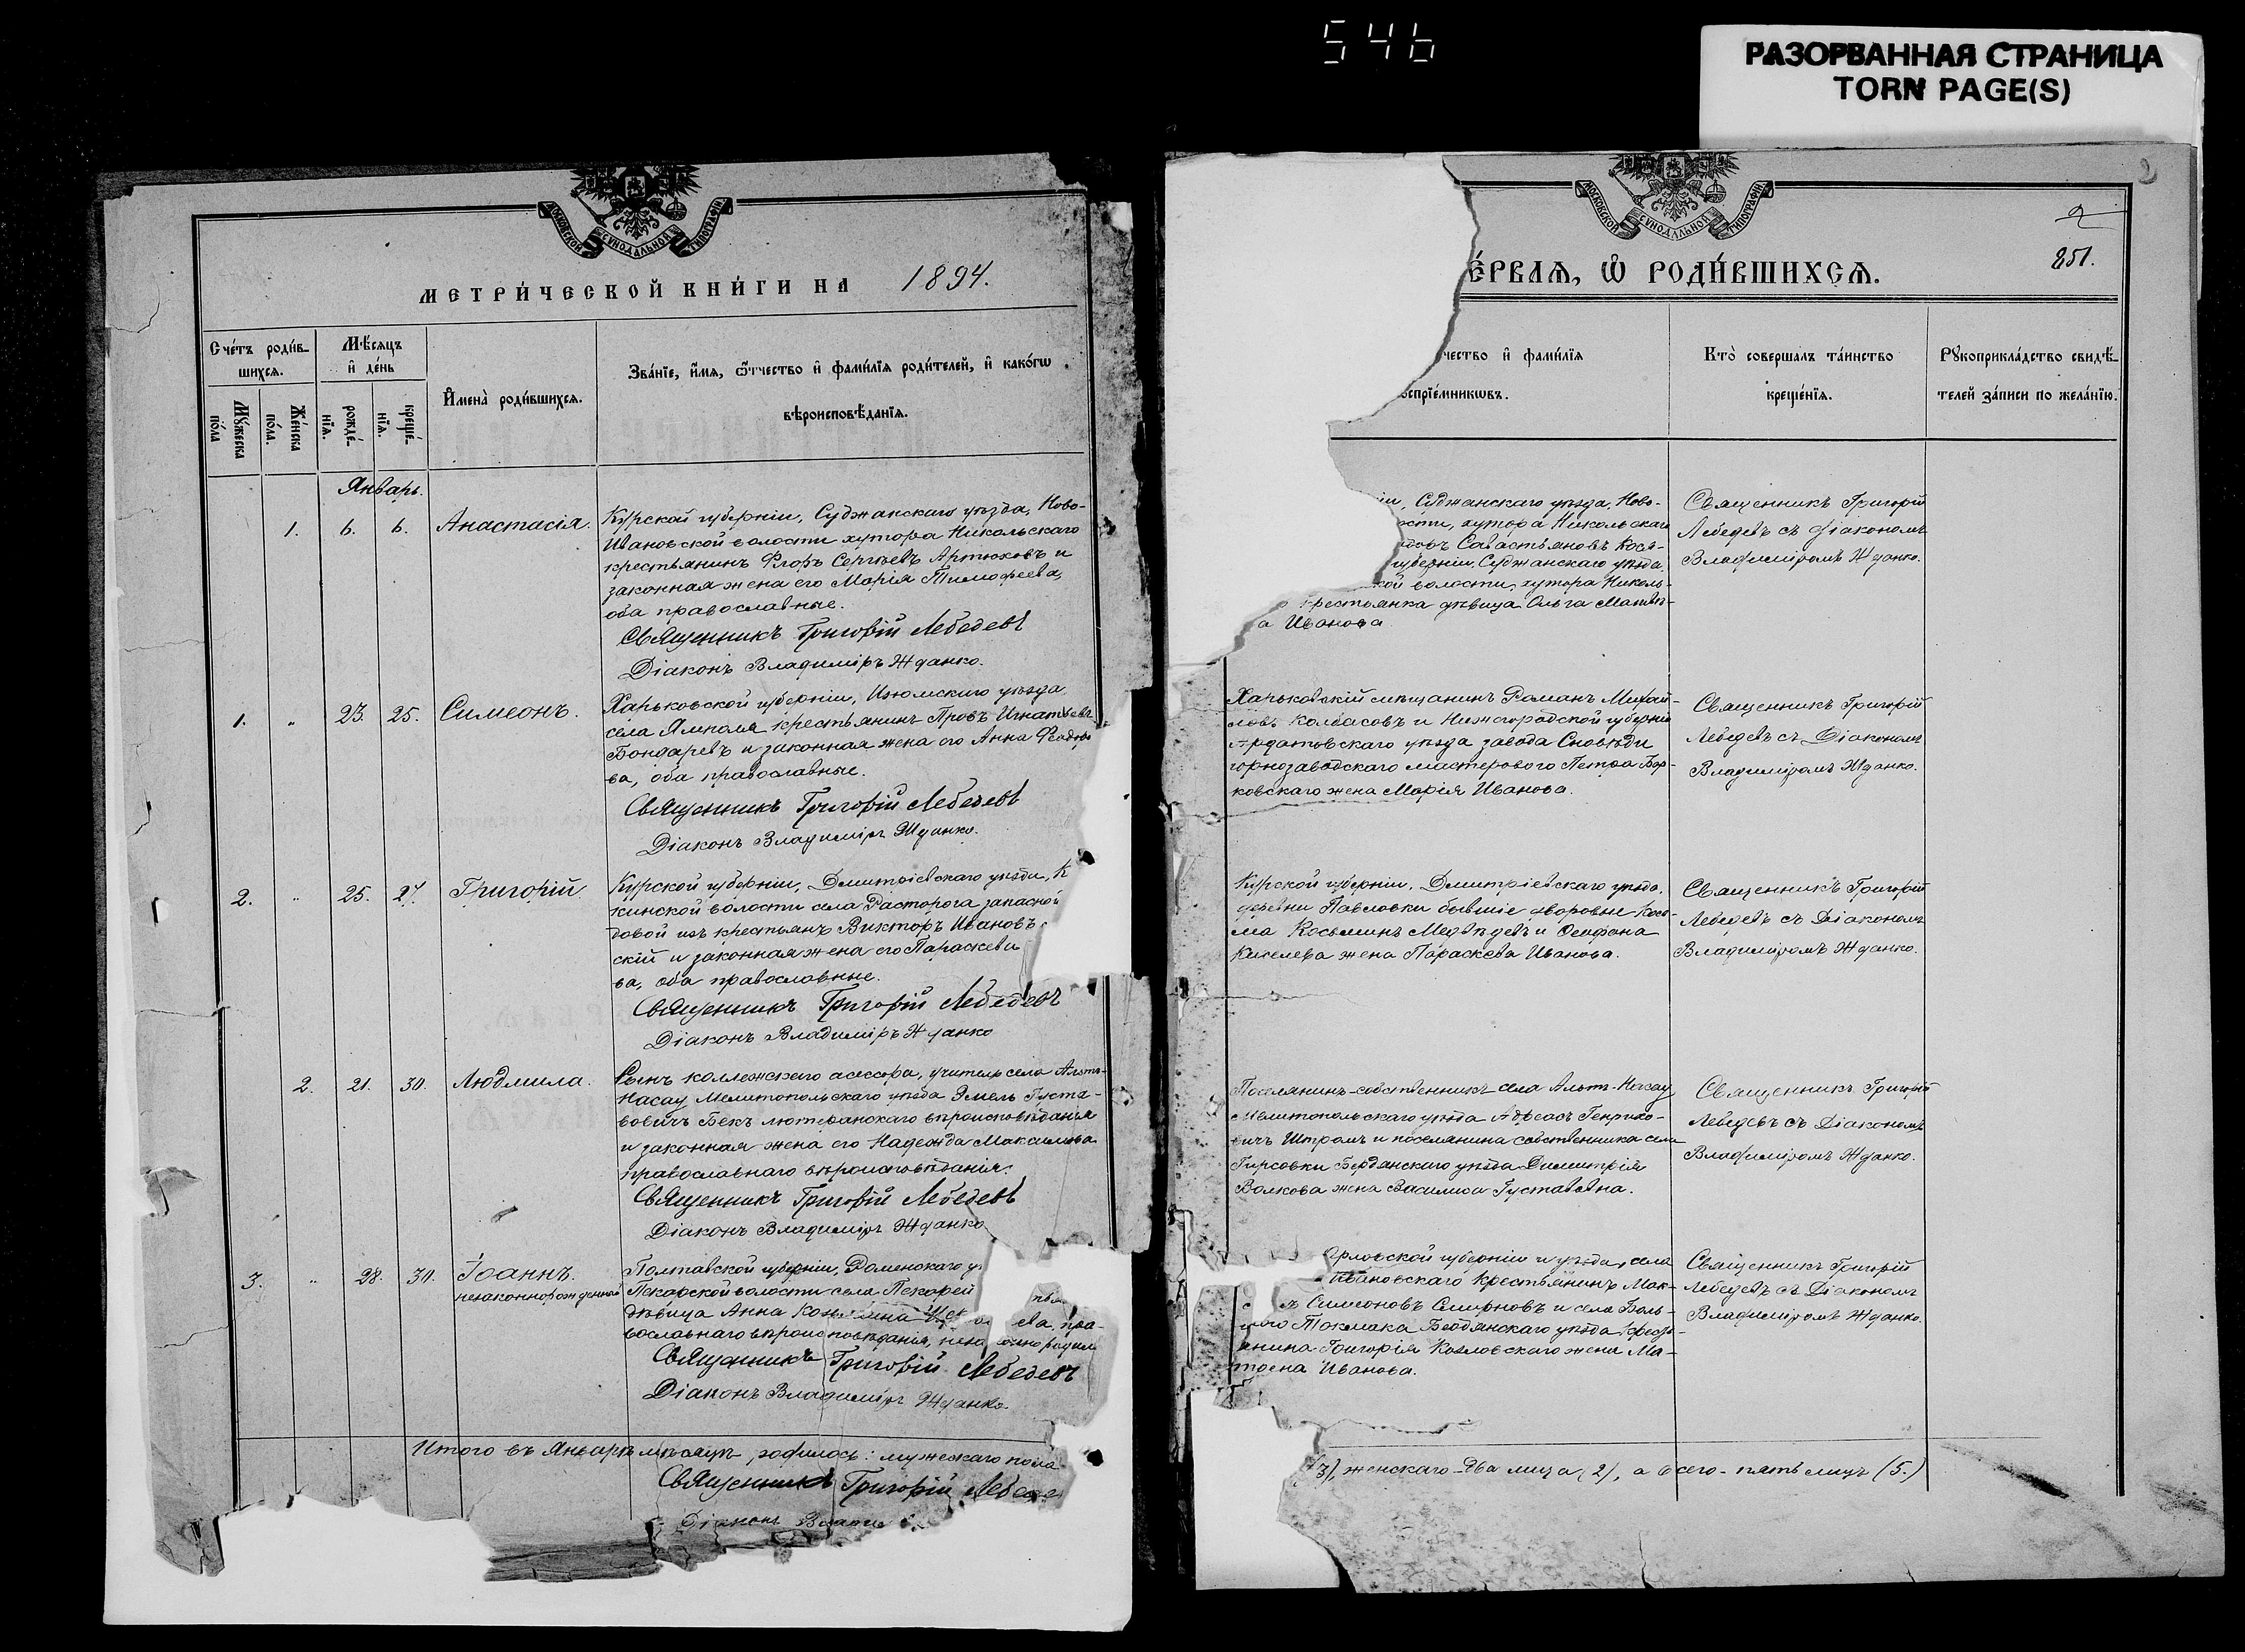 546
РАЗОРВАННАЯ СТРАНИЦА
TORN PAGE(S)
МОСКОВСКОЙ СУНОДАЛЬНОЙ ТИПОГРАФІИ
МЕТРИ́ЧЕСКОЙ КНИ́ГИ НА 1894.
Сче́тъ роди́в-
шихсѧ.
Мѣ́сяцъ
и҆ де́нь
Мꙋ́жеска
по́ла
Же́нска
по́ла.
рожде́-
нїѧ.
креще́-
нїѧ.
И҆мена̀ роди́вшихсѧ.
Зва́нїе, и҆́мѧ, ѻ҆́тчество и҆ фами́лїѧ роди́телей, и҆ како́гѡ
вѣроисповѣ́данїѧ.
Январь.
1. 6. 6. Анастасія.
Курской губерніи, Суджанскаго уѣзда, Ново-
Ивановской волости хутора Никольскаго
крестьянинъ Флоръ Сергѣевъ Артюховъ и
законная жена его Марія Тимофеева,
оба православные.
Священникъ Григорій Лебедевъ
Діаконъ Владиміръ Жданко.
1. " 23. 25. Симеонъ.
Харьковской губерніи, Изюмскаго уѣзда
села Ямполя крестьянинъ Провъ Игнатьевъ
Бондаревъ и законная жена его Анна Феодоро
ва, оба православные.
Священникъ Григорій Лебедевъ
Діаконъ Владиміръ Жданко.
2. " 25. 27. Григорій.
Курской губерніи, Дмитріевскаго уѣзда, К
кинской волости села Расторога запасной
довой изъ крестьянъ Викторъ Ивановъ
скій и законная жена его Параскева
ва, оба православные.
Священникъ Григорій Лебедевъ
Діаконъ Владиміръ Жданко
2. 21. 30. Людмила.
Сынъ коллежскаго асессора, учитель села Альтъ-
Насау Мелитопольскаго уѣзда Эмель Густа-
вовичъ Бекъ лютеранскаго вѣроисповѣданія
и законная жена его Надежда Максимова
православнаго вѣроисповѣданія.
Священникъ Григорій Лебедевъ
Діаконъ Владиміръ Жданко
3. " 28. 30. Іоаннъ.
незаконнорожденный
Полтавской губерніи, Роменскаго у
Пекарской волости села Пекарей
дѣвица Анна ева, пра-
вославнаго вѣроисповѣданія,
Священникъ Григорій Лебедевъ
Діаконъ Владиміръ Жданко.
Итого въ Январѣ мѣсяцѣ, родилось: мужескаго пола
Священникъ Григорій Лебеде
Діаконъ Влади
2
2
851.
МОСКОВСКОЙ СУНОДАЛЬНОЙ ТИПОГРАФІИ
Е́РВАѦ, Ѡ҆ РОДИ́ВШИХСѦ.
чество и҆ фами́лїѧ
оспрїе́мникѡвъ.
Кто̀ соверша́лъ та́инство
креще́нїѧ.
Рꙋкоприкла́дство свидѣ́-
телей за́писи по жела́нїю.
іи, Суджанскаго уѣзда, Ново-
ости, хутора Никольскаго
Савастьяновъ Кося-
губерніи, Суджанскаго уѣзда
кой волости, хутора Николь-
крестьянка дѣвица Ольга Матвѣ-
а Иванова
Священникъ Григорій
Лебедевъ съ діакономъ
Владиміромъ Жданко.
Харьковскій мѣщанинъ Романъ Михай-
ловъ Колбасовъ и Нижегородской губерніи
Ардатовскаго уѣзда завода Сноведи
горнозаводскаго мастерового Петра Бор-
ковскаго жена Марія Иванова.
Священникъ Григорій
Лебедевъ съ Діакономъ
Владиміромъ Жданко.
Курской губерніи, Дмитріевскаго уѣзда,
деревни Павловки бывшіе дворовые Кось-
ма Косьминъ Медвѣдевъ и Феофана
Киселева жена Параскева Иванова.
Священникъ Григорій
Лебедевъ съ Діакономъ
Владиміромъ Жданко.
Поселянинъ-собственникъ села Альтъ-Насау
Мелитопольскаго уѣзда Генрихо-
вичъ Штромъ и поселянина собственника села
Гирсовки Бердянскаго уѣзда Димитрія
Волкова жена Василиса Густавовна.
Священникъ Григорій
Лебедевъ съ Діакономъ
Владиміромъ Жданко.
Орловской губерніи и уѣзда, села
Ивановскаго крестьянинъ Мак-
Симеоновъ Смирновъ и села Боль-
шого Токмака Бердянскаго уѣзда кресть-
янина Григорія Козловскаго жена Ма-
трона Иванова.
Священникъ Григорій
Лебедевъ съ Діакономъ
Владиміромъ Жданко.
(3), женскаго - два лица (2), а всего - пять лицъ (5.)